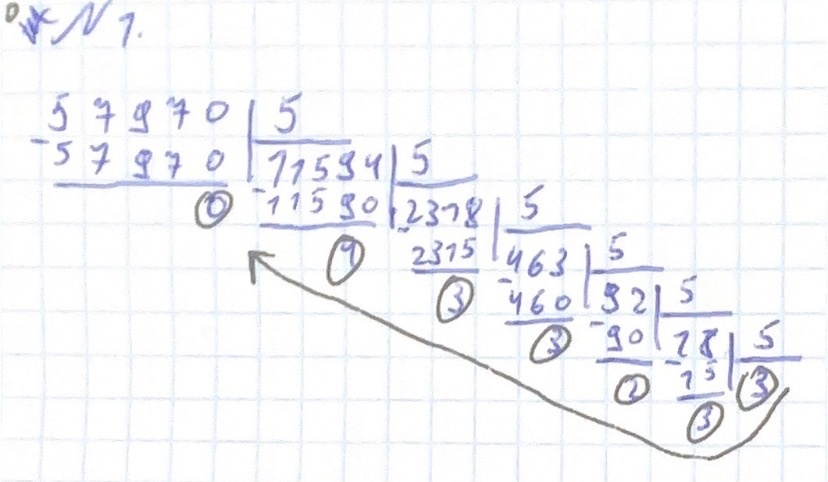 N 1.
57970 5
- 57970 11594 5
0 - 11590 2318 5
4 - 2315 463 5
3 - 460 92 5
3 - 90 18 5
2 - 15 3
3